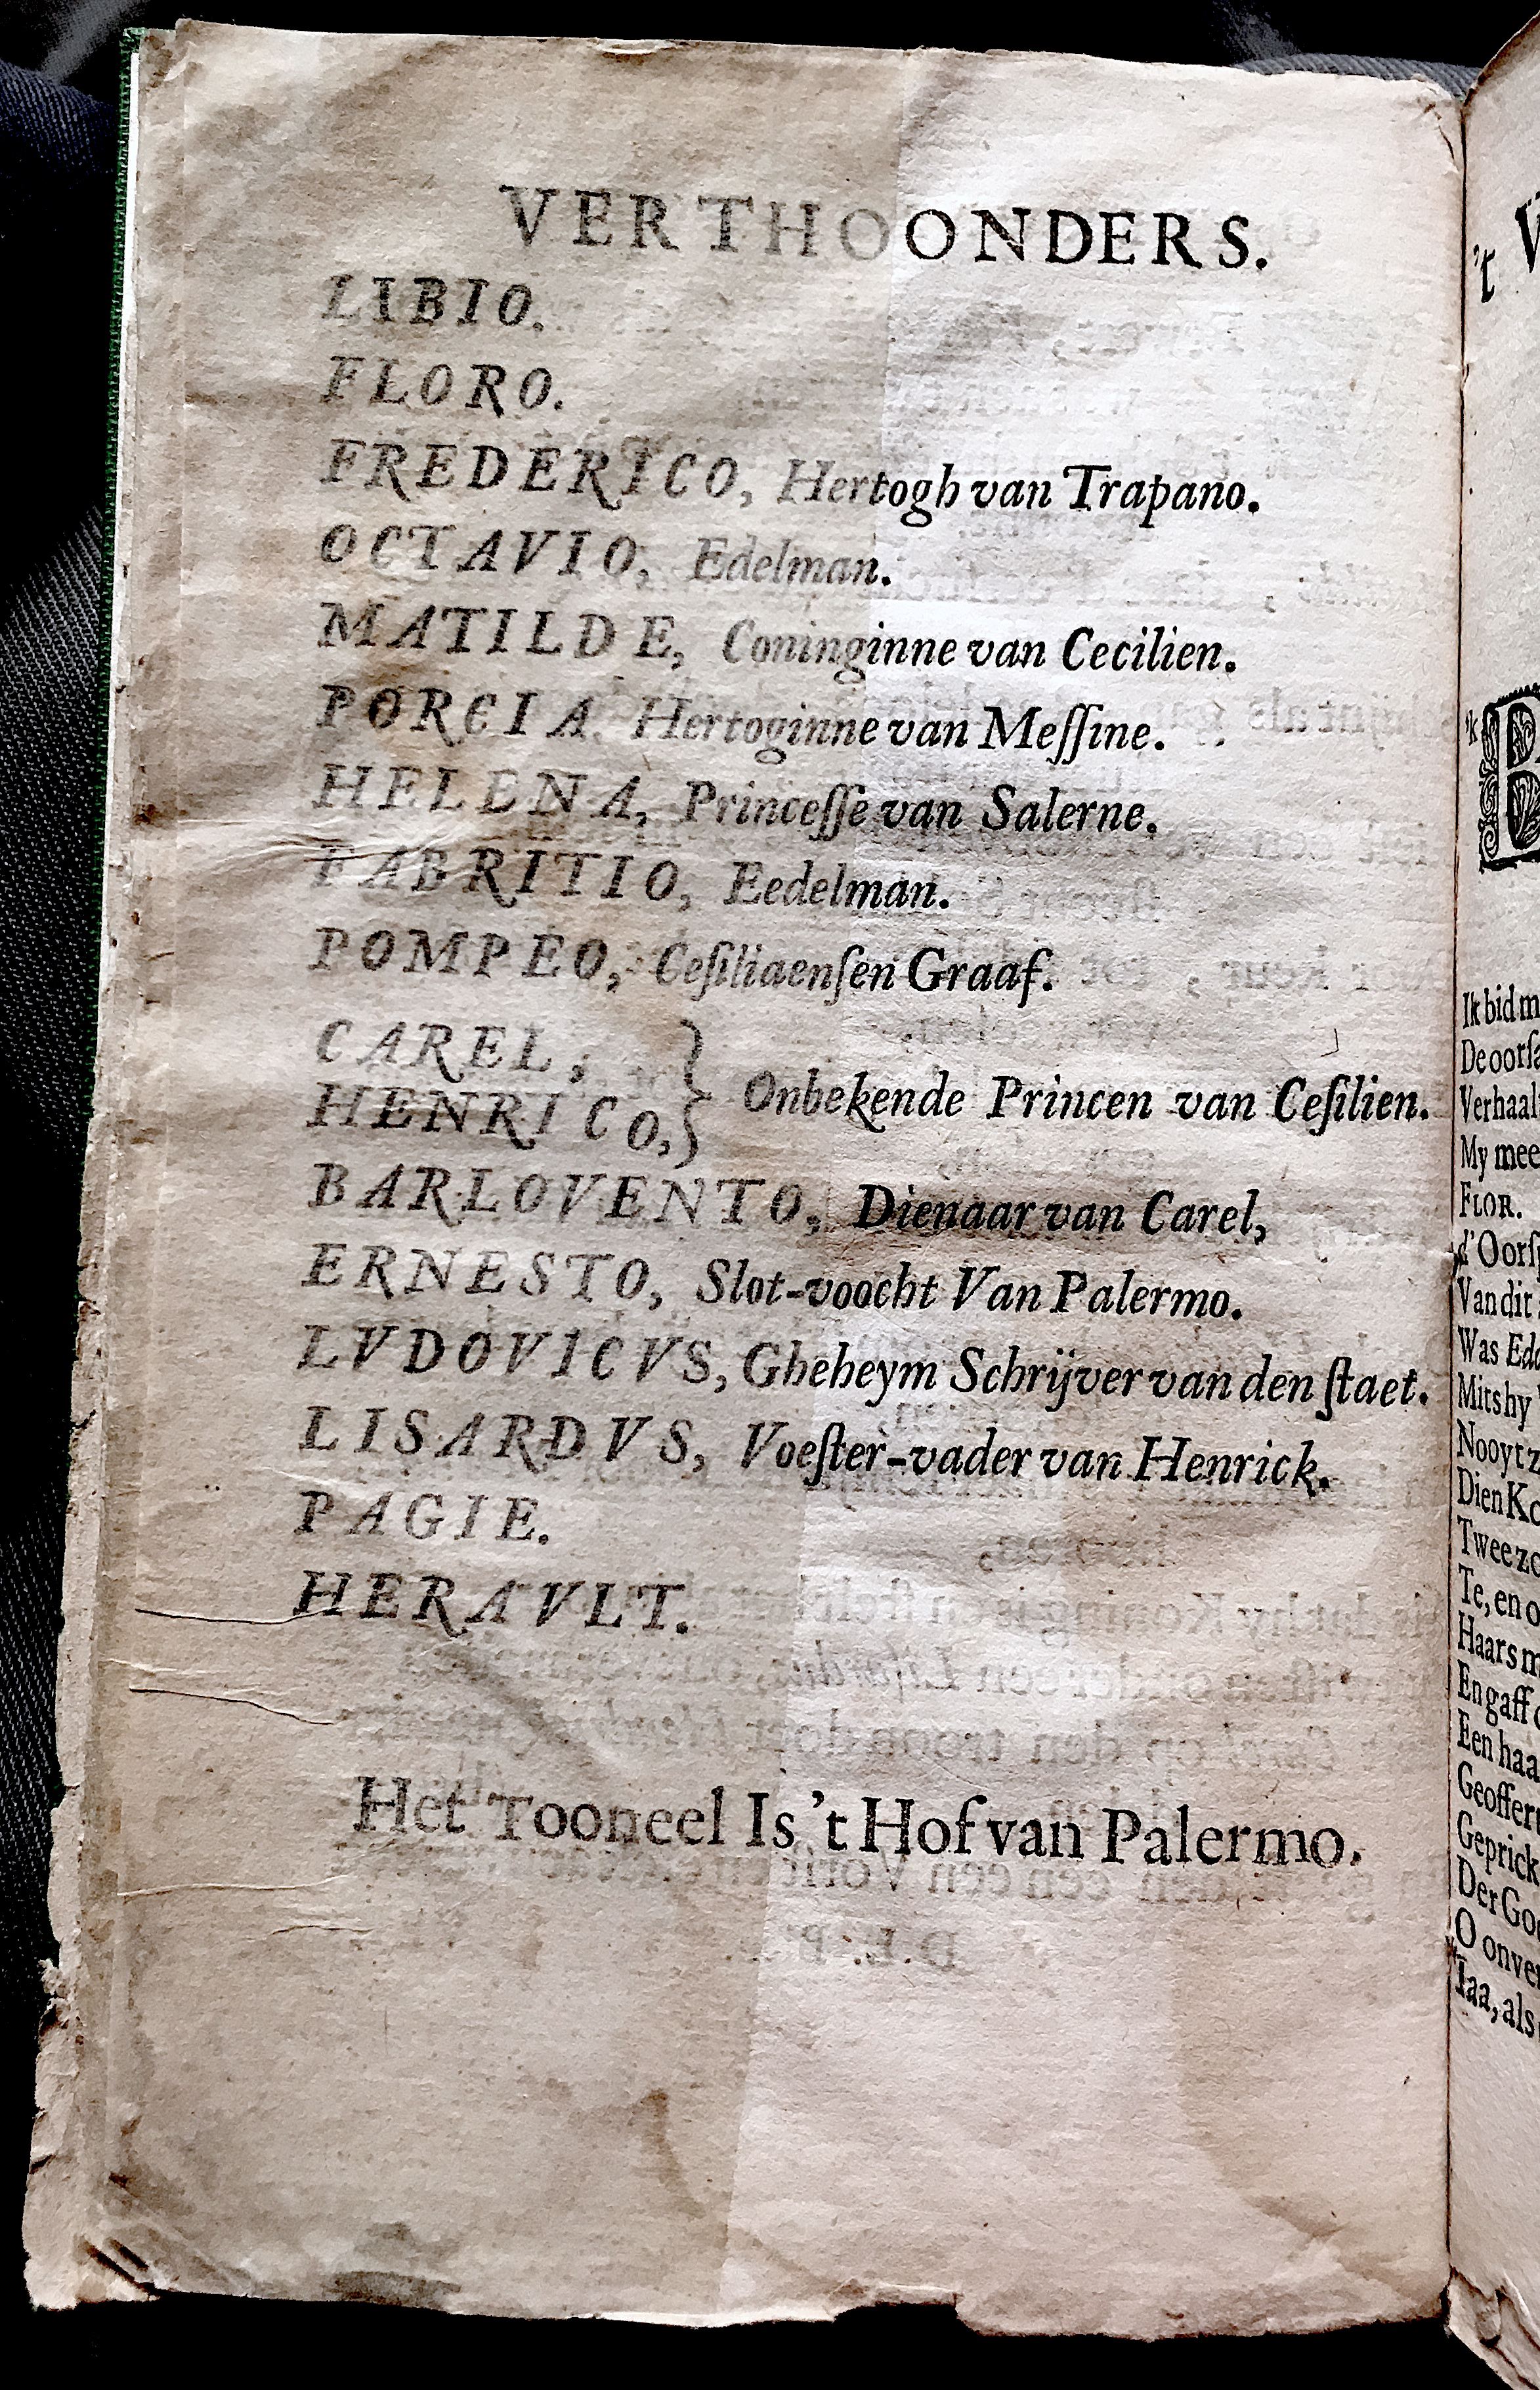 VERTHOONDERS.
LIBIO.
FLORO.
FREDERICO, Hertogh van Trapano.
OCTAVIO, Edelman.
MATILDE, Coninginne van Cecilien.
PORCIA Hertoginne van Meſſine.
HELENA, Princeſſe van Salerne.
FABRITIO, Eedelman.
POMPEO, Ceſiliaenſen Graaf.
CAREL,
HENRICO,} Onbekende Princen van Ceſilien.
BARLOVENTO, Dienaar van Carel,
ERNESTO, Slot-voocht Van Palermo.
LVDOVICVS, Gheheym Schrijver van den ſtaet.
LISARDVS, Voeſter-vader van Henrick.
PAGIE.
HERAVLT.
Het Tooneel Is 't Hof van Palermo.
't
Ik bid
De
Verhaal
My mee
FLOR.
Van dit
Was
Mits hy
Nooyt
Dien
Twee
Te, en
Haars
En gaff
Een
Der
O
Iaa, als